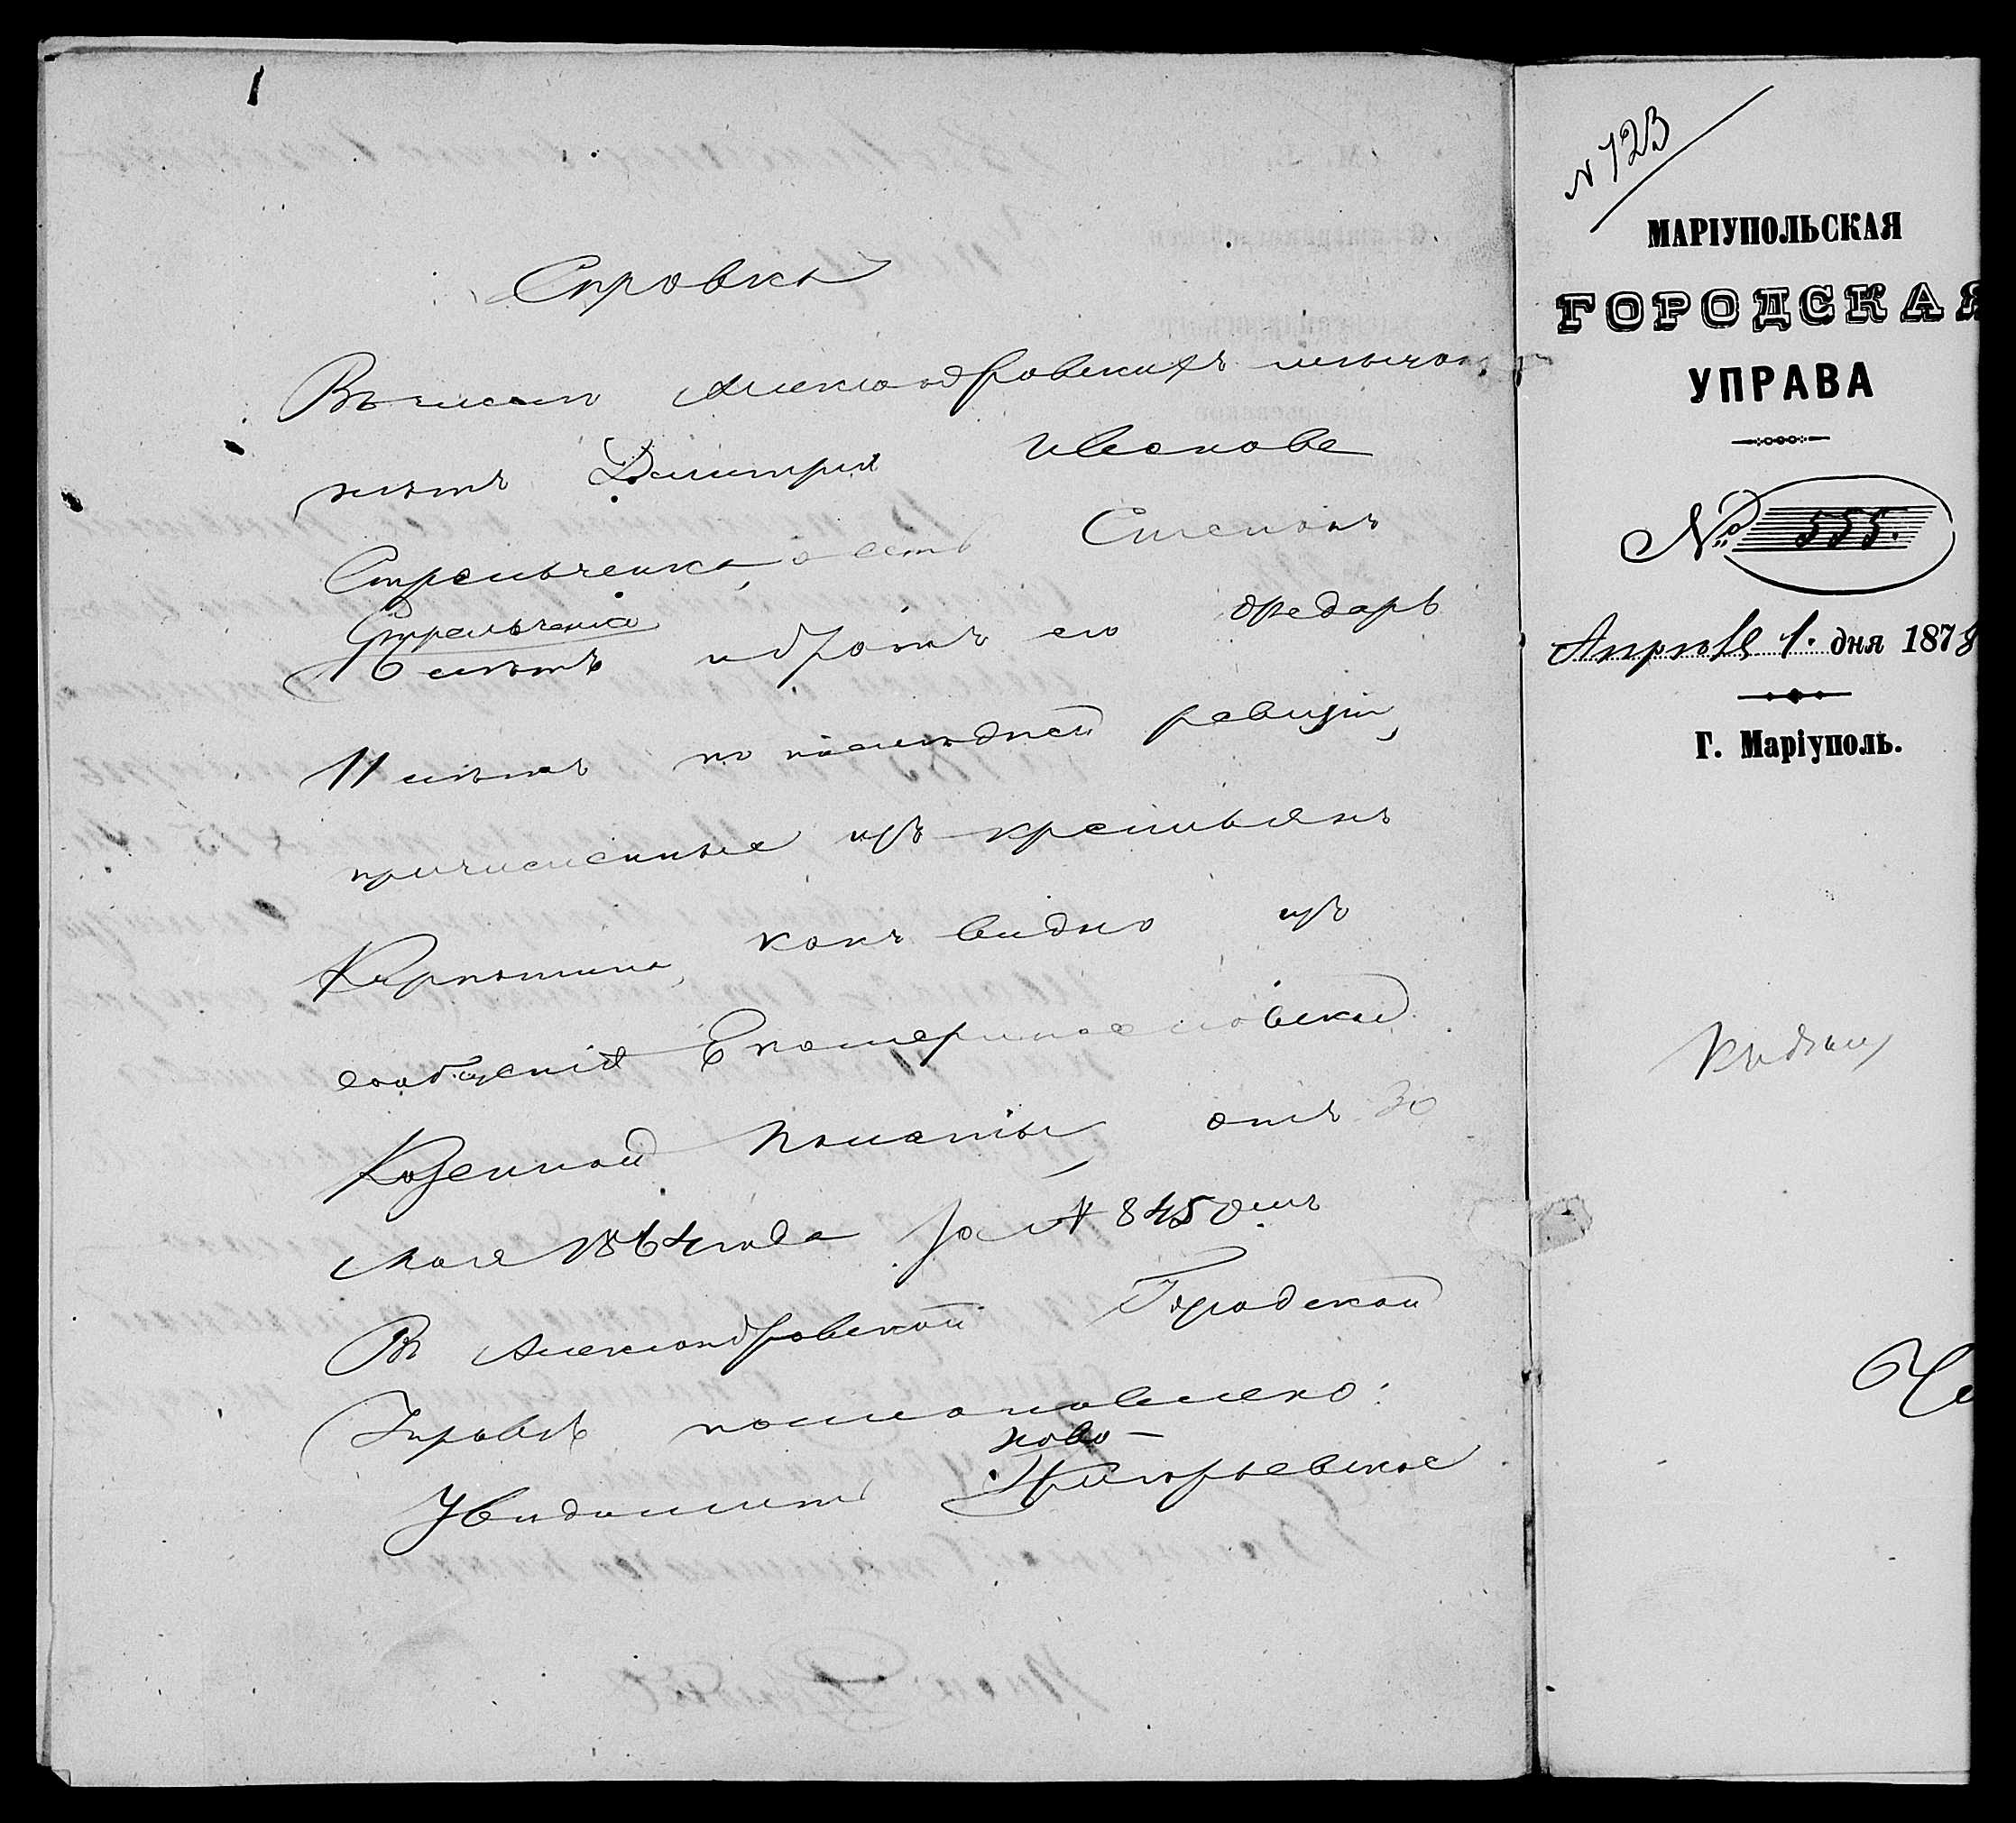 Справка
Въ числѣ Александровскихъ мѣщанъ
нѣтъ Дмитрія Иванова
Стрельченка, а есть Степанъ
Стрельченко
16 лѣтъ и братъ его Федоръ
11 лѣтъ по последней ревизіи,
причисленные изъ крестьянъ
какъ видно изъ
сообщенія Екатеринославской
Казенной Палаты, отъ 30
мая 1864 года за № 8450мъ
Въ Александровской Городской
Управѣ постановлено:
ново-
Увидомить Григорьевское
N 123
МАРІУПОЛЬСКАЯ
ГОРОДСКАЯ
УПРАВА
№ 555.
Апрѣля 1. дня 1878
Г. Маріуполь.